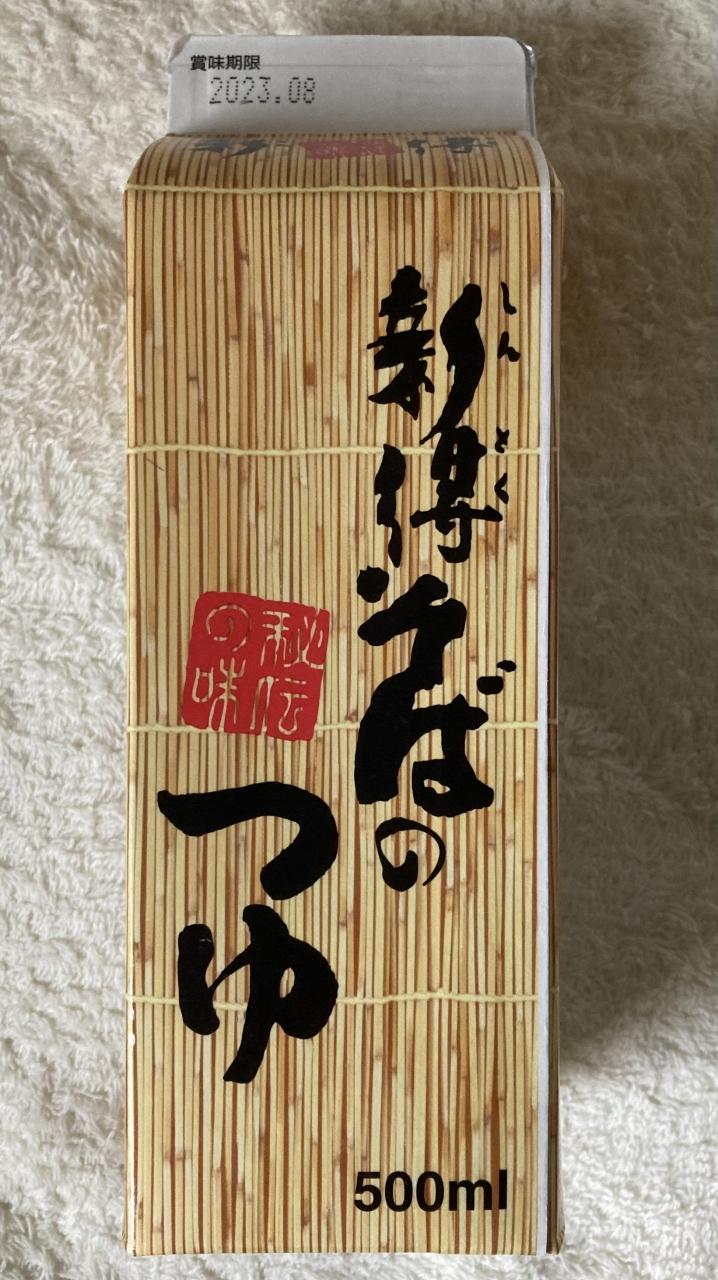 賞味期限
2023.08
しんとく
新得そばの
秘伝
の味
つゆ
500ml